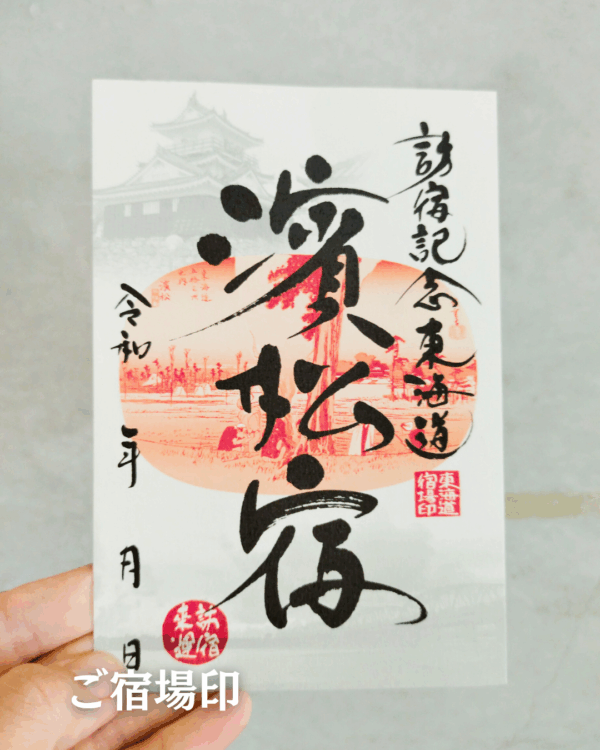 訪宿記念東海道
濱松宿
令和 年 月 日
東海道
宿場印
ご宿場印